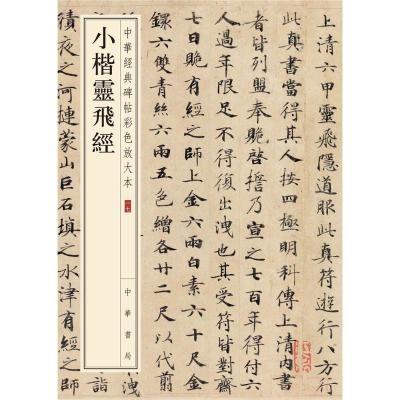 上清六甲靈飛隱道服此真符遊行八方行
此真書當得其人按四極明科傳上清內書
者皆列盟奉賝啓誓乃宣之七百年得付六
人過年限足不得復出洩也其受符皆對齋
七日賝有經之師上金六兩白素六十尺金
鐶六雙青絲六兩五色繒各廿二尺以代翦
中華經典碑帖彩色放大本
中華書局
小楷靈飛經
洩
積夜之河連蒙山巨石填之水津有經